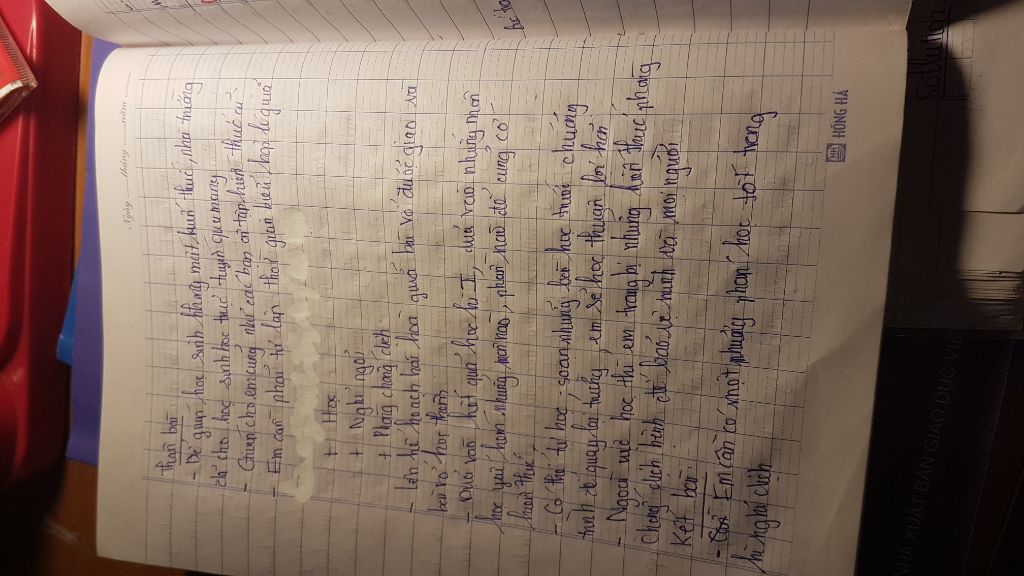 Ngày ........ tháng ........ năm ........
Thân bài
- Để giúp học sinh không mất kiến thức, nhà trường
đã cho học sinh học trực tuyến qua mạng
- Giúp cho em cũng như các bạn ôn tập kiến thức cũ
- Em cần phải tự lập thời gian biểu hợp lí quá
+ Học
+ Nghỉ ngơi
+ Phòng chống dịch
- Lên kế hoạch hoàn hoá quá bài vở được giao và
bài vở
- Dựa vào kết quả học kì I, dựa vào những môn
học yếu hơn những môn nào, phần nào để củng cố
kiến thức
- Có thể tự học soạn những bài học trước chương
trình để quay lại trường, em sẽ học thuận lợi hơn
- Ngoài việc học thì em trang bị những kiến thức phòng
chống dịch bệnh để bảo vệ mình và mọi người
Kết bài
- Em cần có một phương pháp học tốt trong
kì nghỉ dịch
HỒNG HÀ
Sollution
NHÀ XUẤT BẢN GIÁO DỤC VIỆ